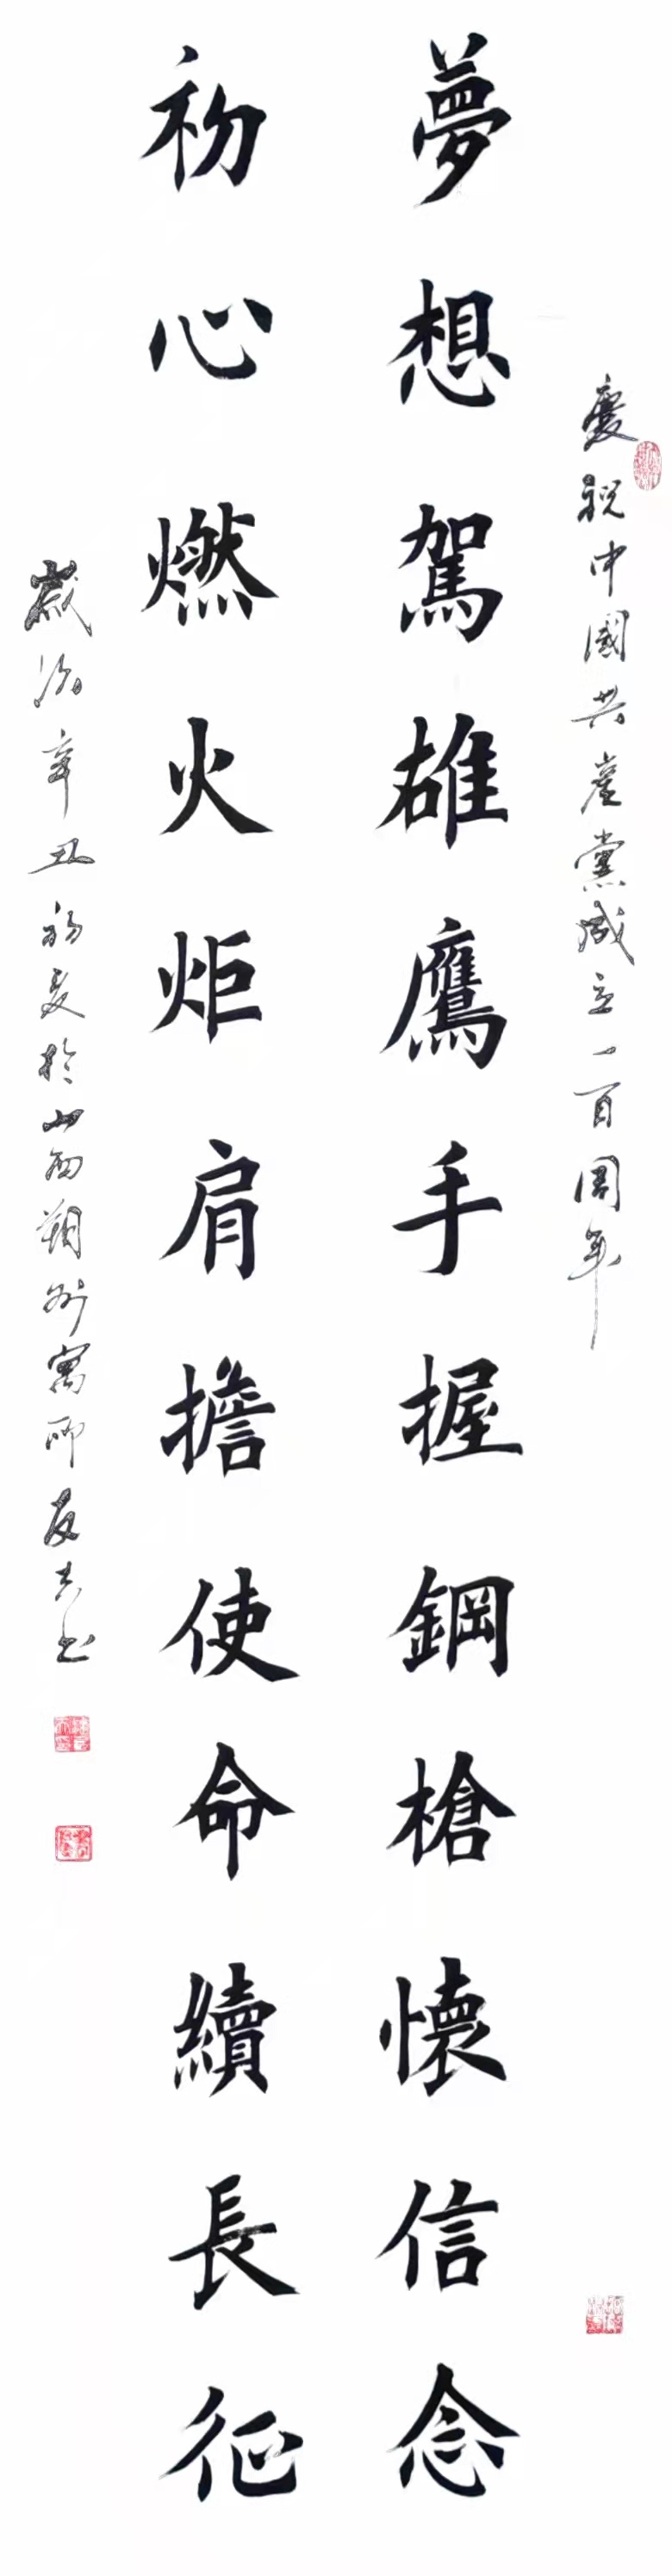 慶祝中國共產黨成立一百周年
夢想駕雄鷹手握鋼槍懷信念
初心燃火炬肩擔使命續長征
歲次辛丑初夏於山西朔州寓所友志书